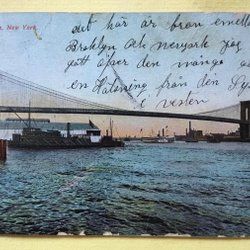 , New York.
det här är bron emellan
Broklyn och neryork jag
gått öfver den många
en Hälsning från den
i vesten